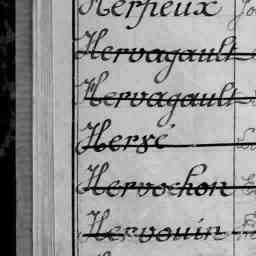 Herpeux
Hervagault
Hervagault
Hervé
Hervochon
Hervouin